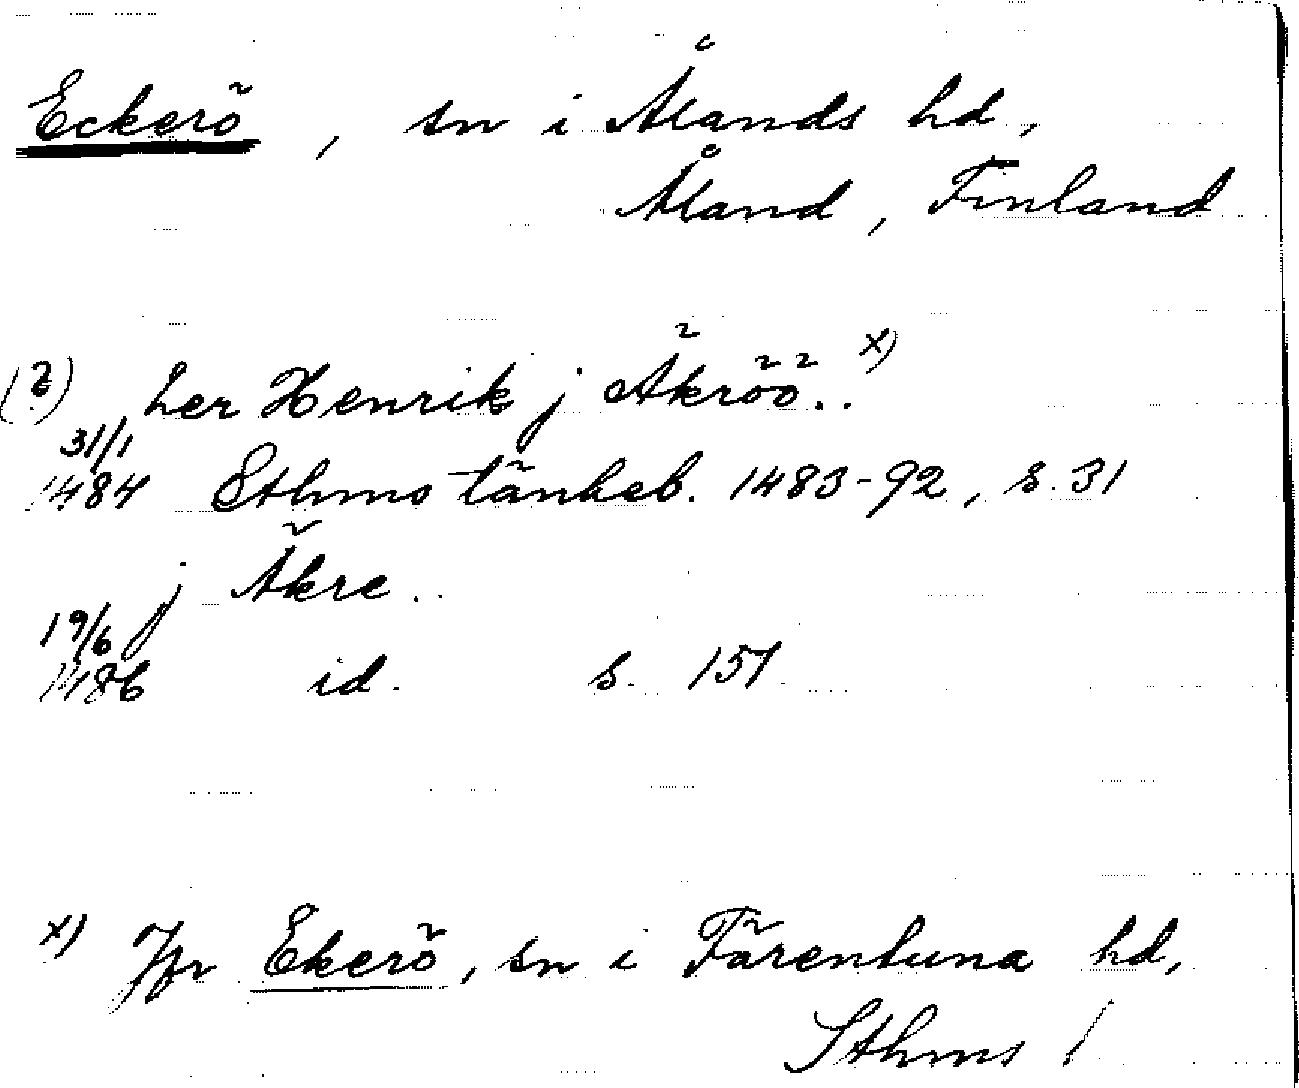 Eckerö, sn i Ålands hd,
Åland, Finland
(?) her Henrik j Äkröö.. x)
31/1
1484 Sthms tänkeb. 1483-92, s. 31
j Äkre..
19/6
1486 id. s. 157
x) Jfr Ekerö, sn i Färentuna hd,
Sthms l